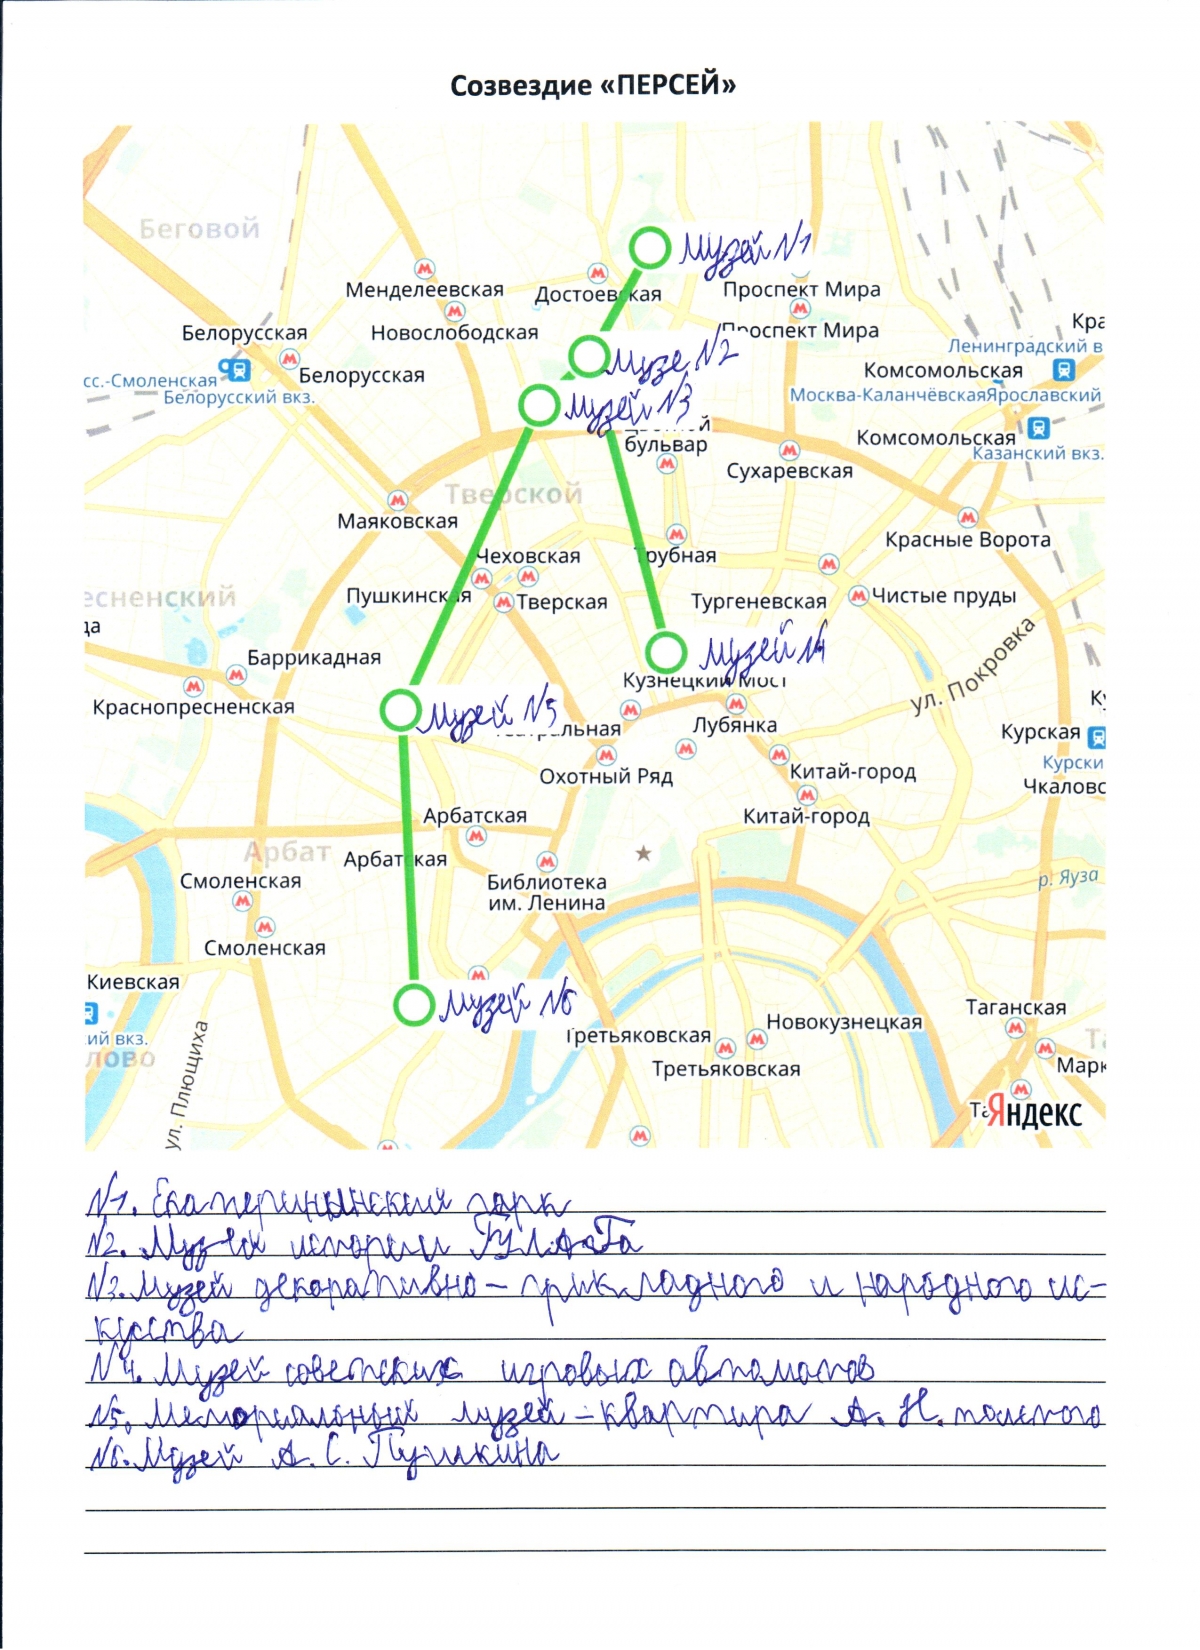 Созвездие «ПЕРСЕЙ»
Беговой
Музей №1
Менделеевская
Достоевская
Проспект Мира
Новослободская
Проспект Мира
Белорусская
Музе №2
Ленинградский в
Белорусская
Комсомольская
сс.-Смоленская
Белорусский вкз.
Москва-Каланчёвская
Ярославский
Музей №3
бульвар
Комсомольская
Казанский вкз.
Сухаревская
Тверской
Маяковская
Красные Ворота
Чеховская
Трубная
Пушкинская
Тверская
Тургеневская
Чистые пруды
есненский
да
Баррикадная
Музей №4
ул. Покровка
Кузнецкий Мост
Краснопресненская
Музей №5
Лубянка
Курская
Охотный Ряд
Китай-город
Курски
Чкаловс
Арбатская
Китай-город
Арбат
Арбатская
Смоленская
Библиотека
им. Ленина
р. Яуза
Смоленская
Киевская
Музей №6
ий вкз.
лово
Третьяковская
Новокузнецкая
Таганская
Третьяковская
Марк
ул. Плющиха
Та
Яндекс
№1. Екатерининский парк
№2. Музей истории ГУЛАГа
№3. Музей декоративно – прикладного и народного ис-
кусства
№4. Музей советских игровых автоматов
№5. Мемориальный музей – квартира А. Н. толстого
№6. Музей А. С. Пушкина